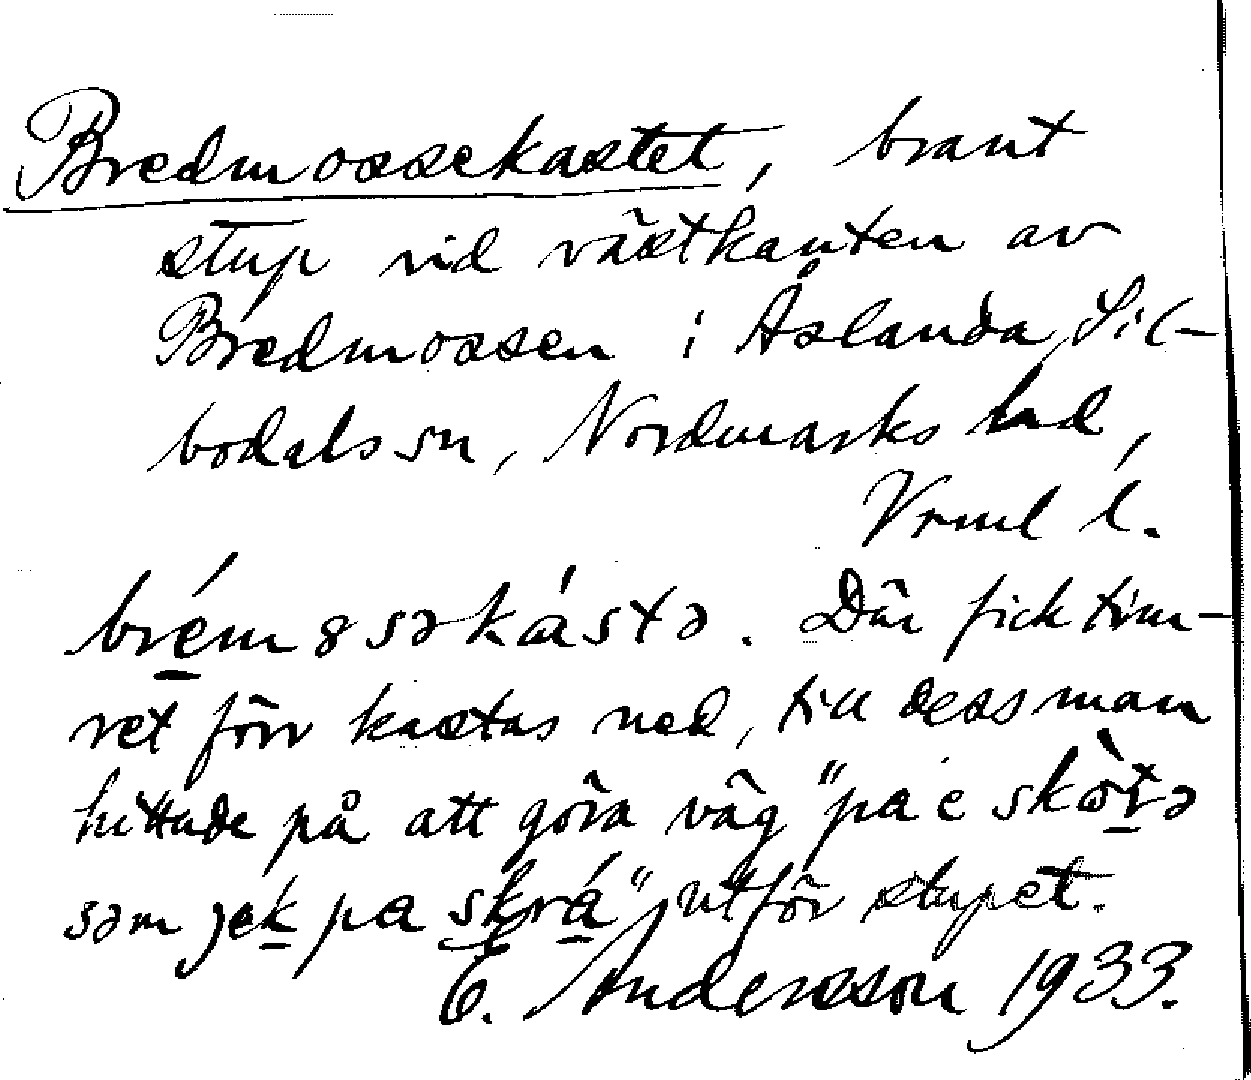 Bredmossekastet, brant
stup vid västkanten av
Bredmossen i Åslanda, Sil-
bodals sn, Nordmarks hd,
Vrml l.
brémɷsəkástə. Där fick tim-
ret förr kastas ned, till dess man
hittade på att göra väg "pa e
səm jek pa skrá" utför stupet.
E. Andersson 1933.